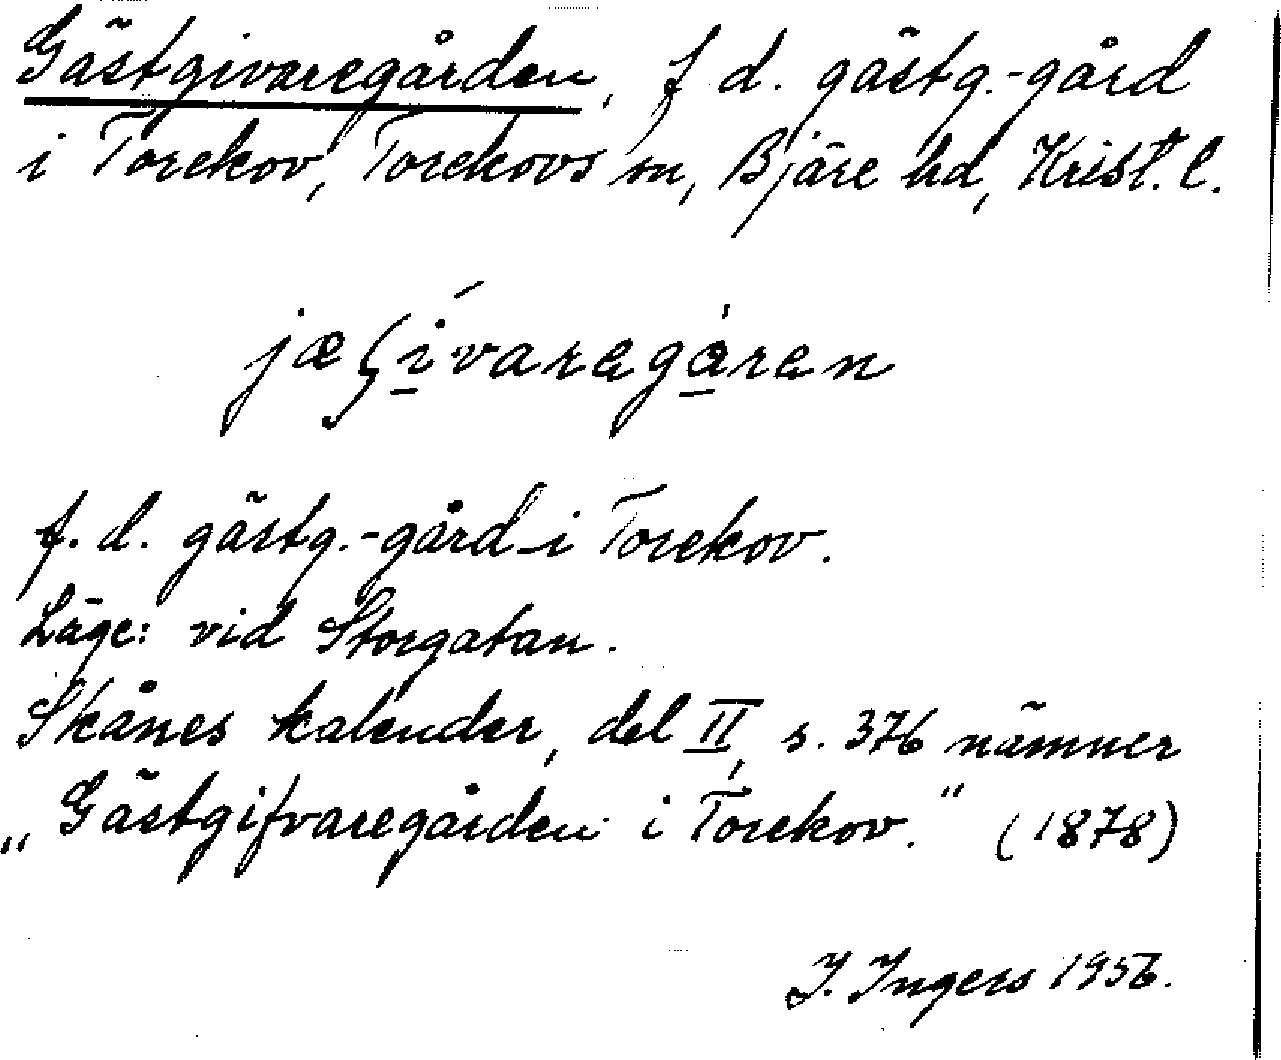 Gästgivaregården, f d. gästg.-gård
i Torekov, Torekovs sn, Bjäre hd, Krist. l.
f. d. gästg.-gård i Torekov.
Läge: vid Storgatan.
Skånes kalender, del II, s. 376 nämner
„Gästgifvaregården i Torekov." (1878)
I. Ingers 1956.